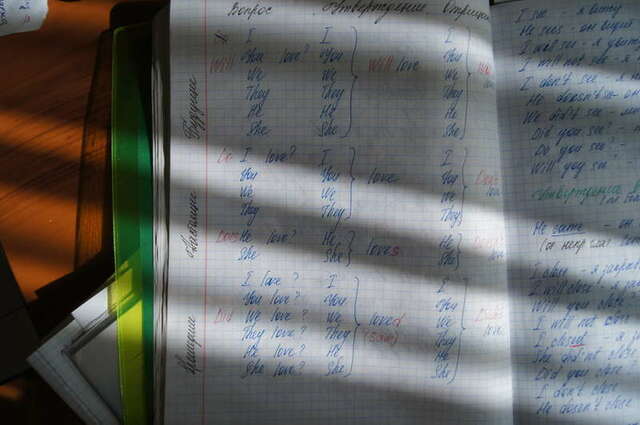 Вопрос Утверждение Отрицан
I I I
Will You love? You will love You
We We We
They They They
He He He
She She She
Будущее
Do I love? I love I Don't
You You You love
We We We
They They They
Настоящее
Does He love? He loves He
She She She
I love? I I
You love? You You
Did We love? We loved We
They love? They (saw) They love
He love? He He
She love? She She
I see - я вижу
He sees - он видит
I will see - я
I will not see - я
I don't see - я
He doesn't see - он
We did see -
Did you see? -
Do you see? -
Will you see? -
Утверждение
I close - я
I will close - я
Will you close
I will not close
I closed - я
She did not close
Did you close
I don't close
He doesn't close